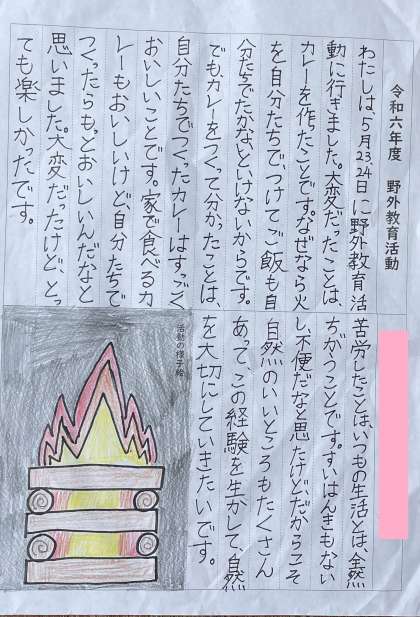 令和六年度 野外教育活動
わたしは5月23、24日に野外教育活
動に行きました。大変だったことは、
カレーを作たことです。なぜなら火
を自分たちで、つけてご飯も自
分たちでたかないといけないからです。
でも、カレーをつくって分かったことは、
自分たちでつくったカレーはすっごく
おいしいことです。家で食べるカ
レーもおいしいけど、自分たちで
つくったらもっとおいしいんだなと
思いました。大変だったけど、とっ
ても楽しかったです。
苦労したことは、いつもの生活とは、全然
ちがうことです。すいはんきもない
し、不便だなと思たけど、だからこそ
自然のいいところもたくさん
あって、この経験を生かして、自然
を大切にしていきたいです。
活動の様子絵